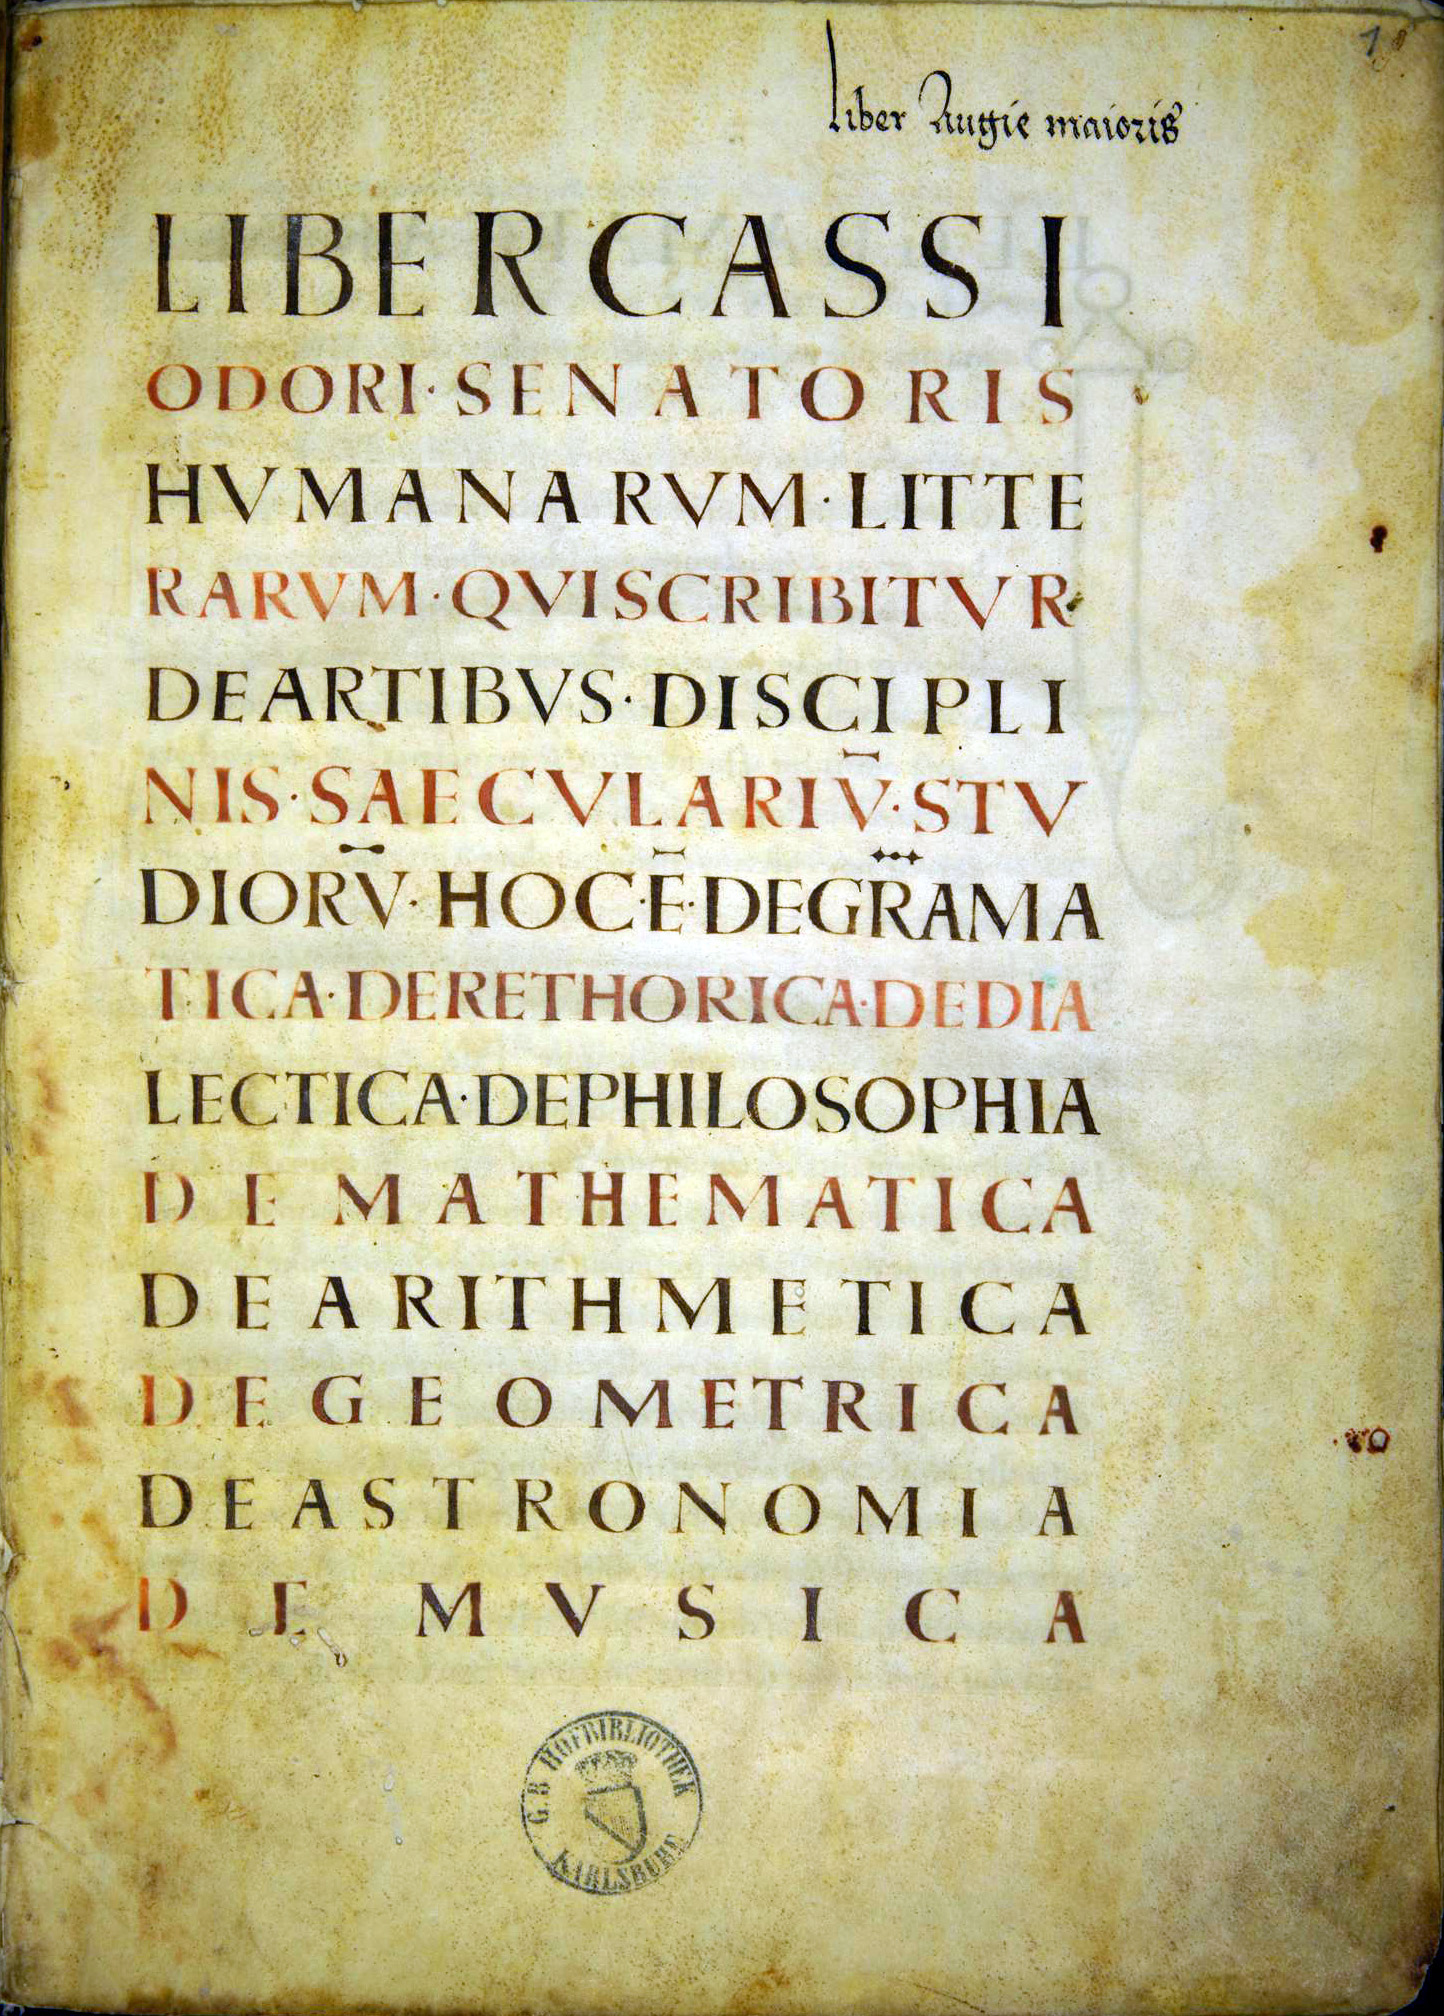 1
liber Augie maioris
LIBER CASSI
ODORI · SENATORIS
HVMANARVM · LITTE
RARVM · QVI SCRIBITVR
DE ARTIBVS · DISCIPLI
NIS · SAECVLARIV̄ · STV
DIORV̄ · HOC · Ē · DE GRAMA
TICA · DE RETHORICA · DE DIA
LECTICA · DE PHILOSOPHIA
DE MATHEMATICA
DE ARITHMETICA
DE GEOMETRICA
DE ASTRONOMIA
DE MVSICA
G. B. HOFBIBLIOTHEK
KARLSRUHE